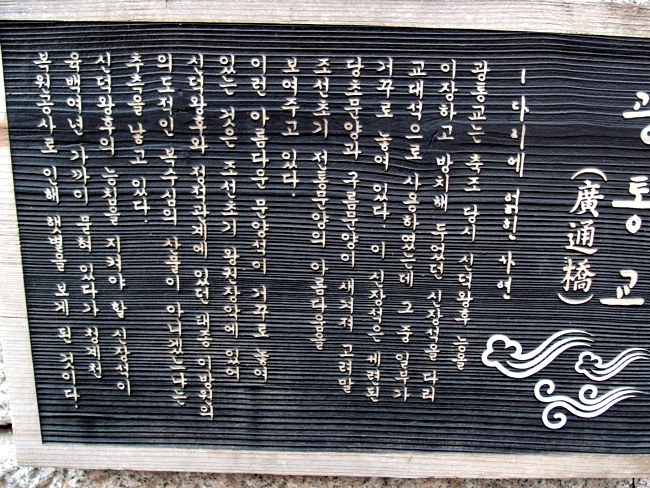 광통교
(廣通橋)
- 다리에 얽힌 사연
광통교는 축조 당시 신덕왕후 능을
이장하고 방치해 두었던 신장석을 다리
교대석으로 사용하였는데 그 중 일부가
거꾸로 놓여 있다. 이 신장석은 세련된
당초문양과 구름문양이 새겨져 고려말
조선초기 전통문양의 아름다움을
보여주고 있다.
이런 아름다운 문양석이 거꾸로 놓여
있는 것은 조선초기 왕권장악에 있어
신덕왕후와 정적관계에 있던 태종 이방원의
의도적인 복수심의 산물이 아니겠느냐는
추측을 낳고 있다.
신덕왕후의 능침을 지켜야 할 신장석이
육백여년 가까이 묻혀 있다가 청계천
복원공사로 인해 햇빛을 보게 된 것이다.